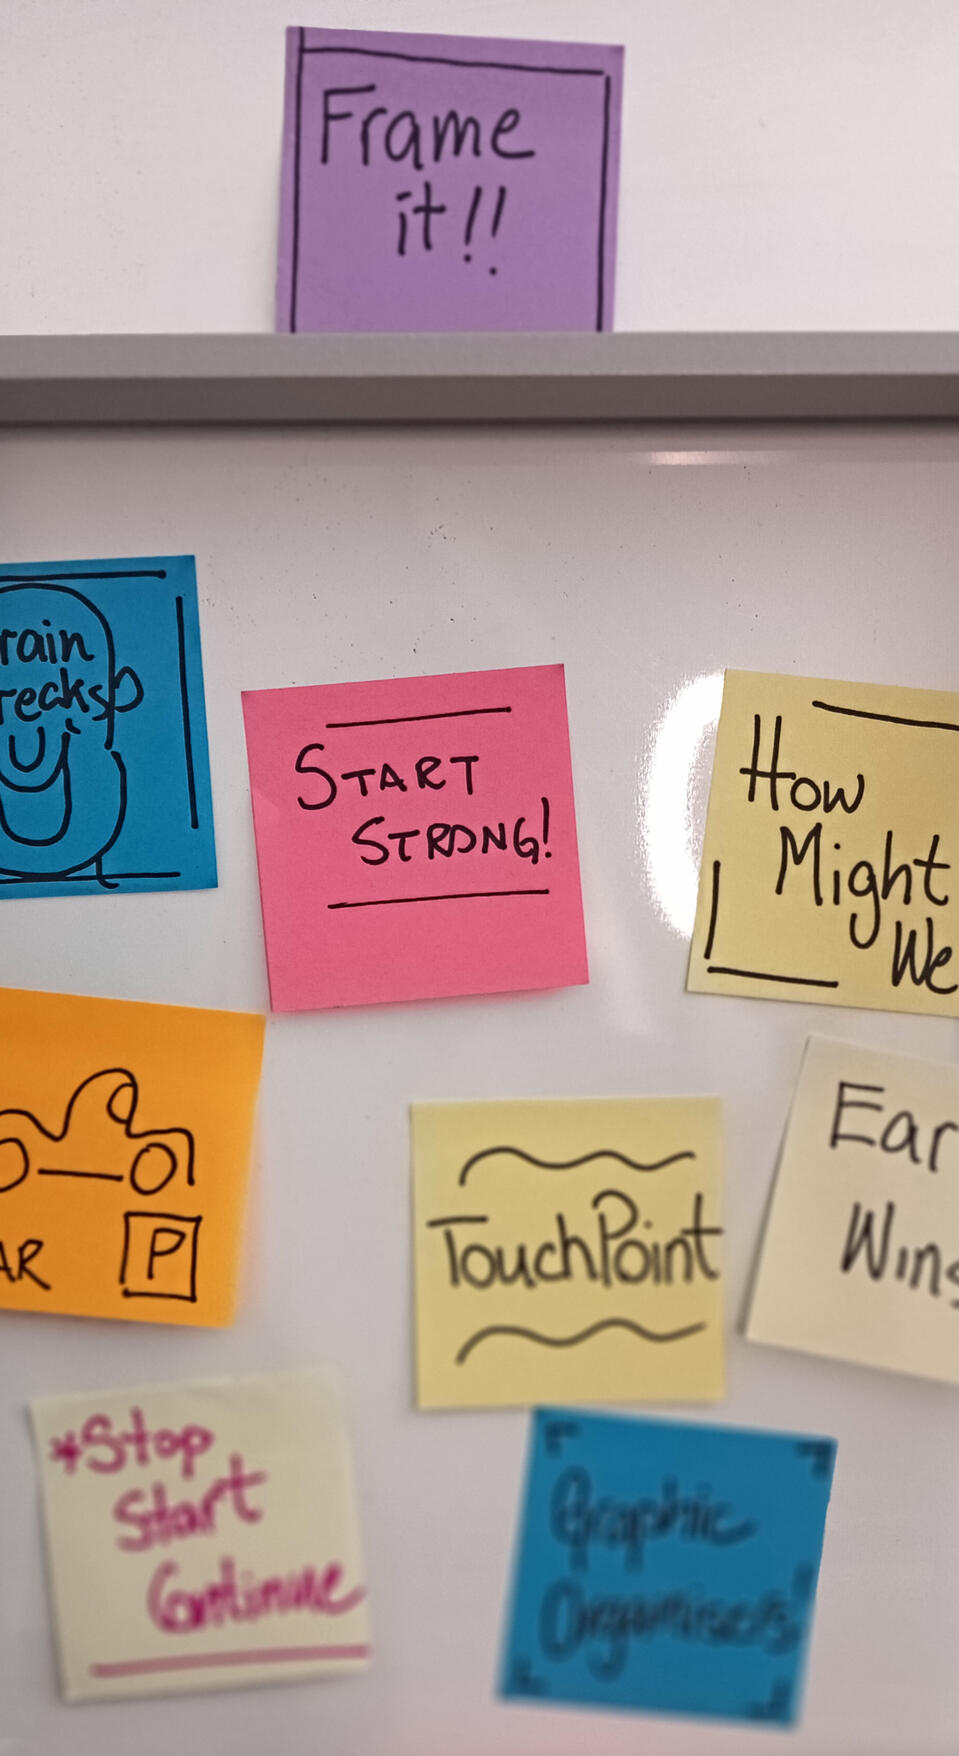 Frame
it!!
rain
reaks
START
STRONG!
How
Might
We
AR P
TouchPoint
Ear
Wins
*Stop
Start
Continue
Graphic
Organisers